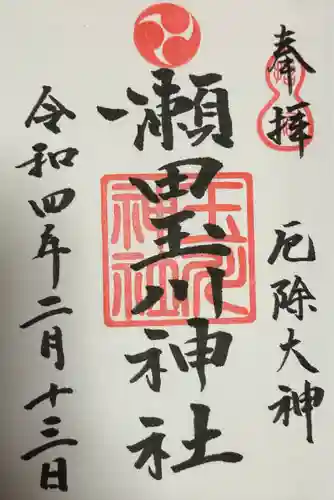 奉拝
厄除大神
瀬田玉川神社
玉川
神社
令和四年二月十三日